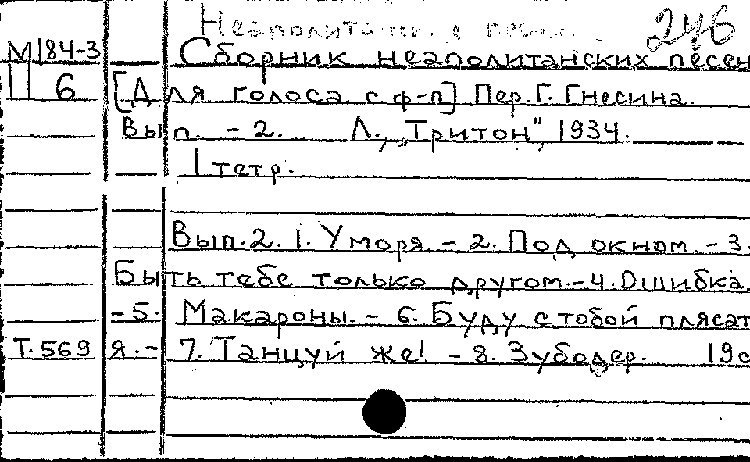 Неаполитанск песни 246
М 184-3 Сборник неаполитанских песен
6 [Для голоса с ф-п] Пер. Г. Гнесина.
Вып. - 2. Л., „Тритон", 1934.
1 тетр.
Вып. 2. 1. Умора. - 2. Под окном. - 3.
Быть тебе только другом. - 4. Ошибка.
- 5. Макароны. - 6. Буду с тобой плясат
Т. 569 я. - 7. Танцуй же! - 8. Зубодер. 19с